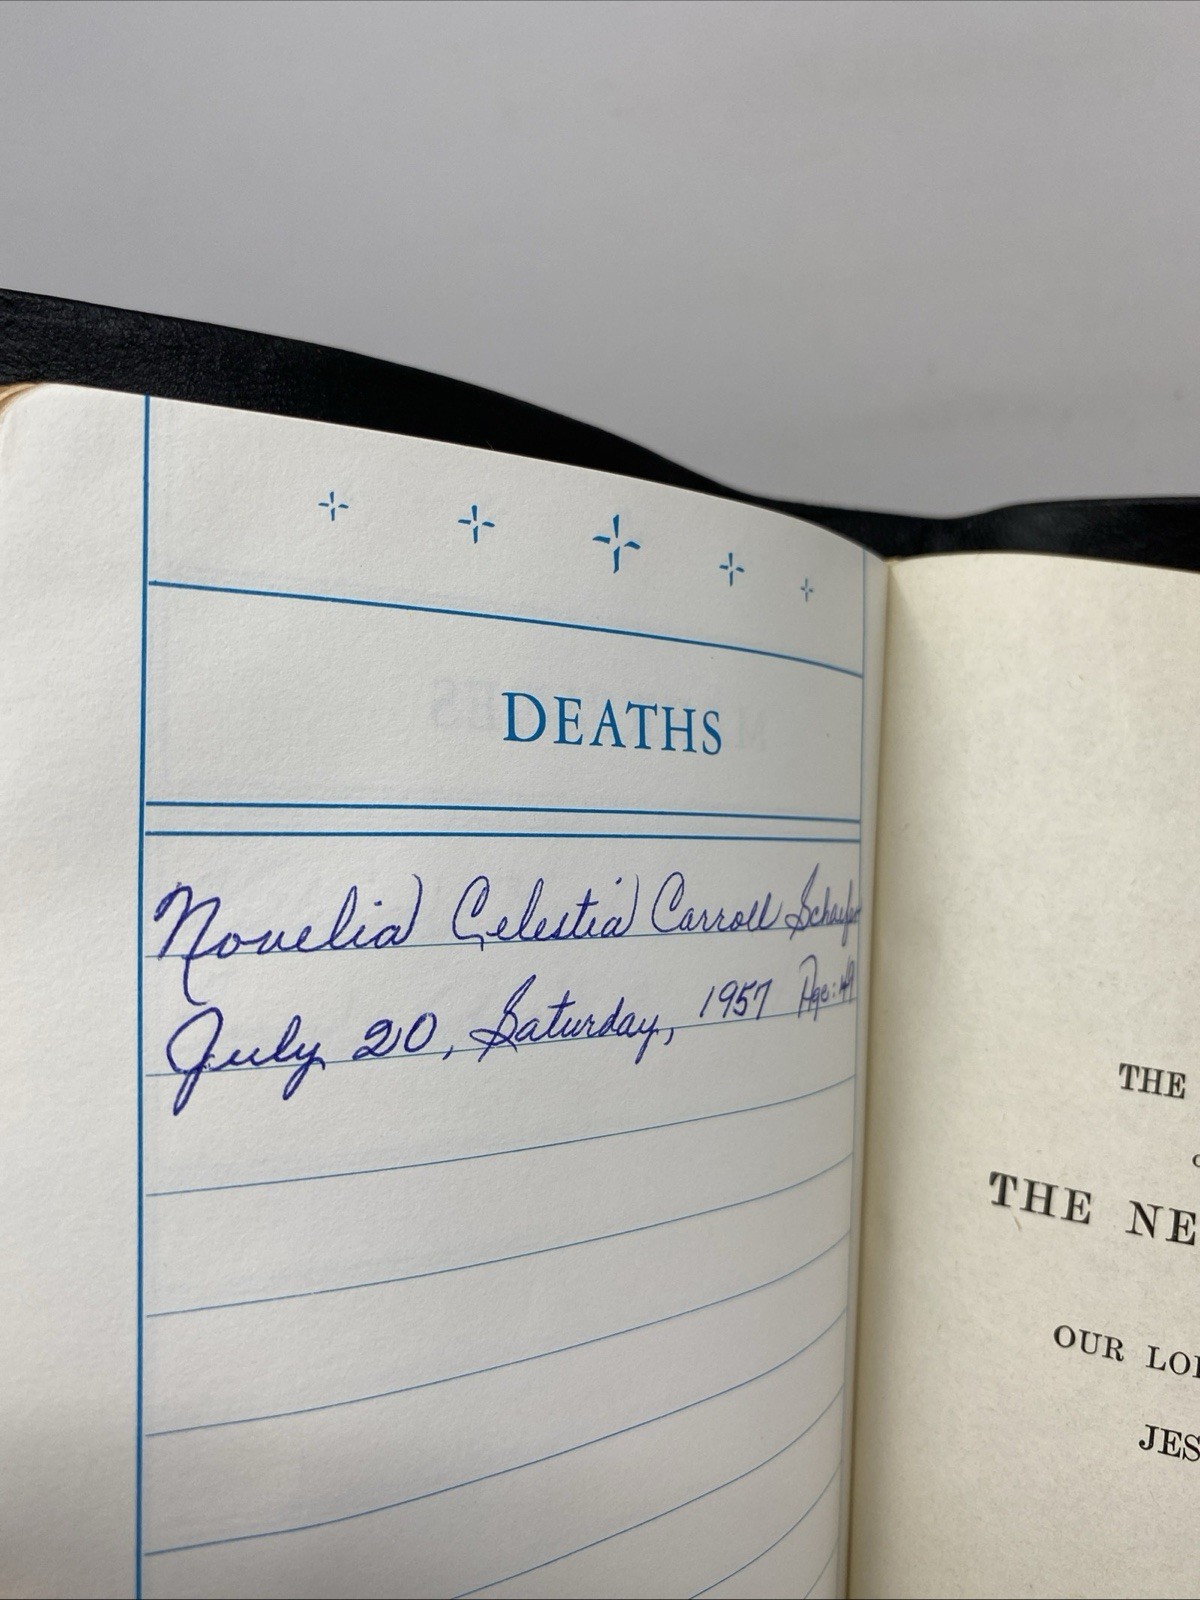 DEATHS
Novelia Celestia Carroll
July 20, Saturday, 1957 Age: 49
THE
THE NE
OUR LOR
JES